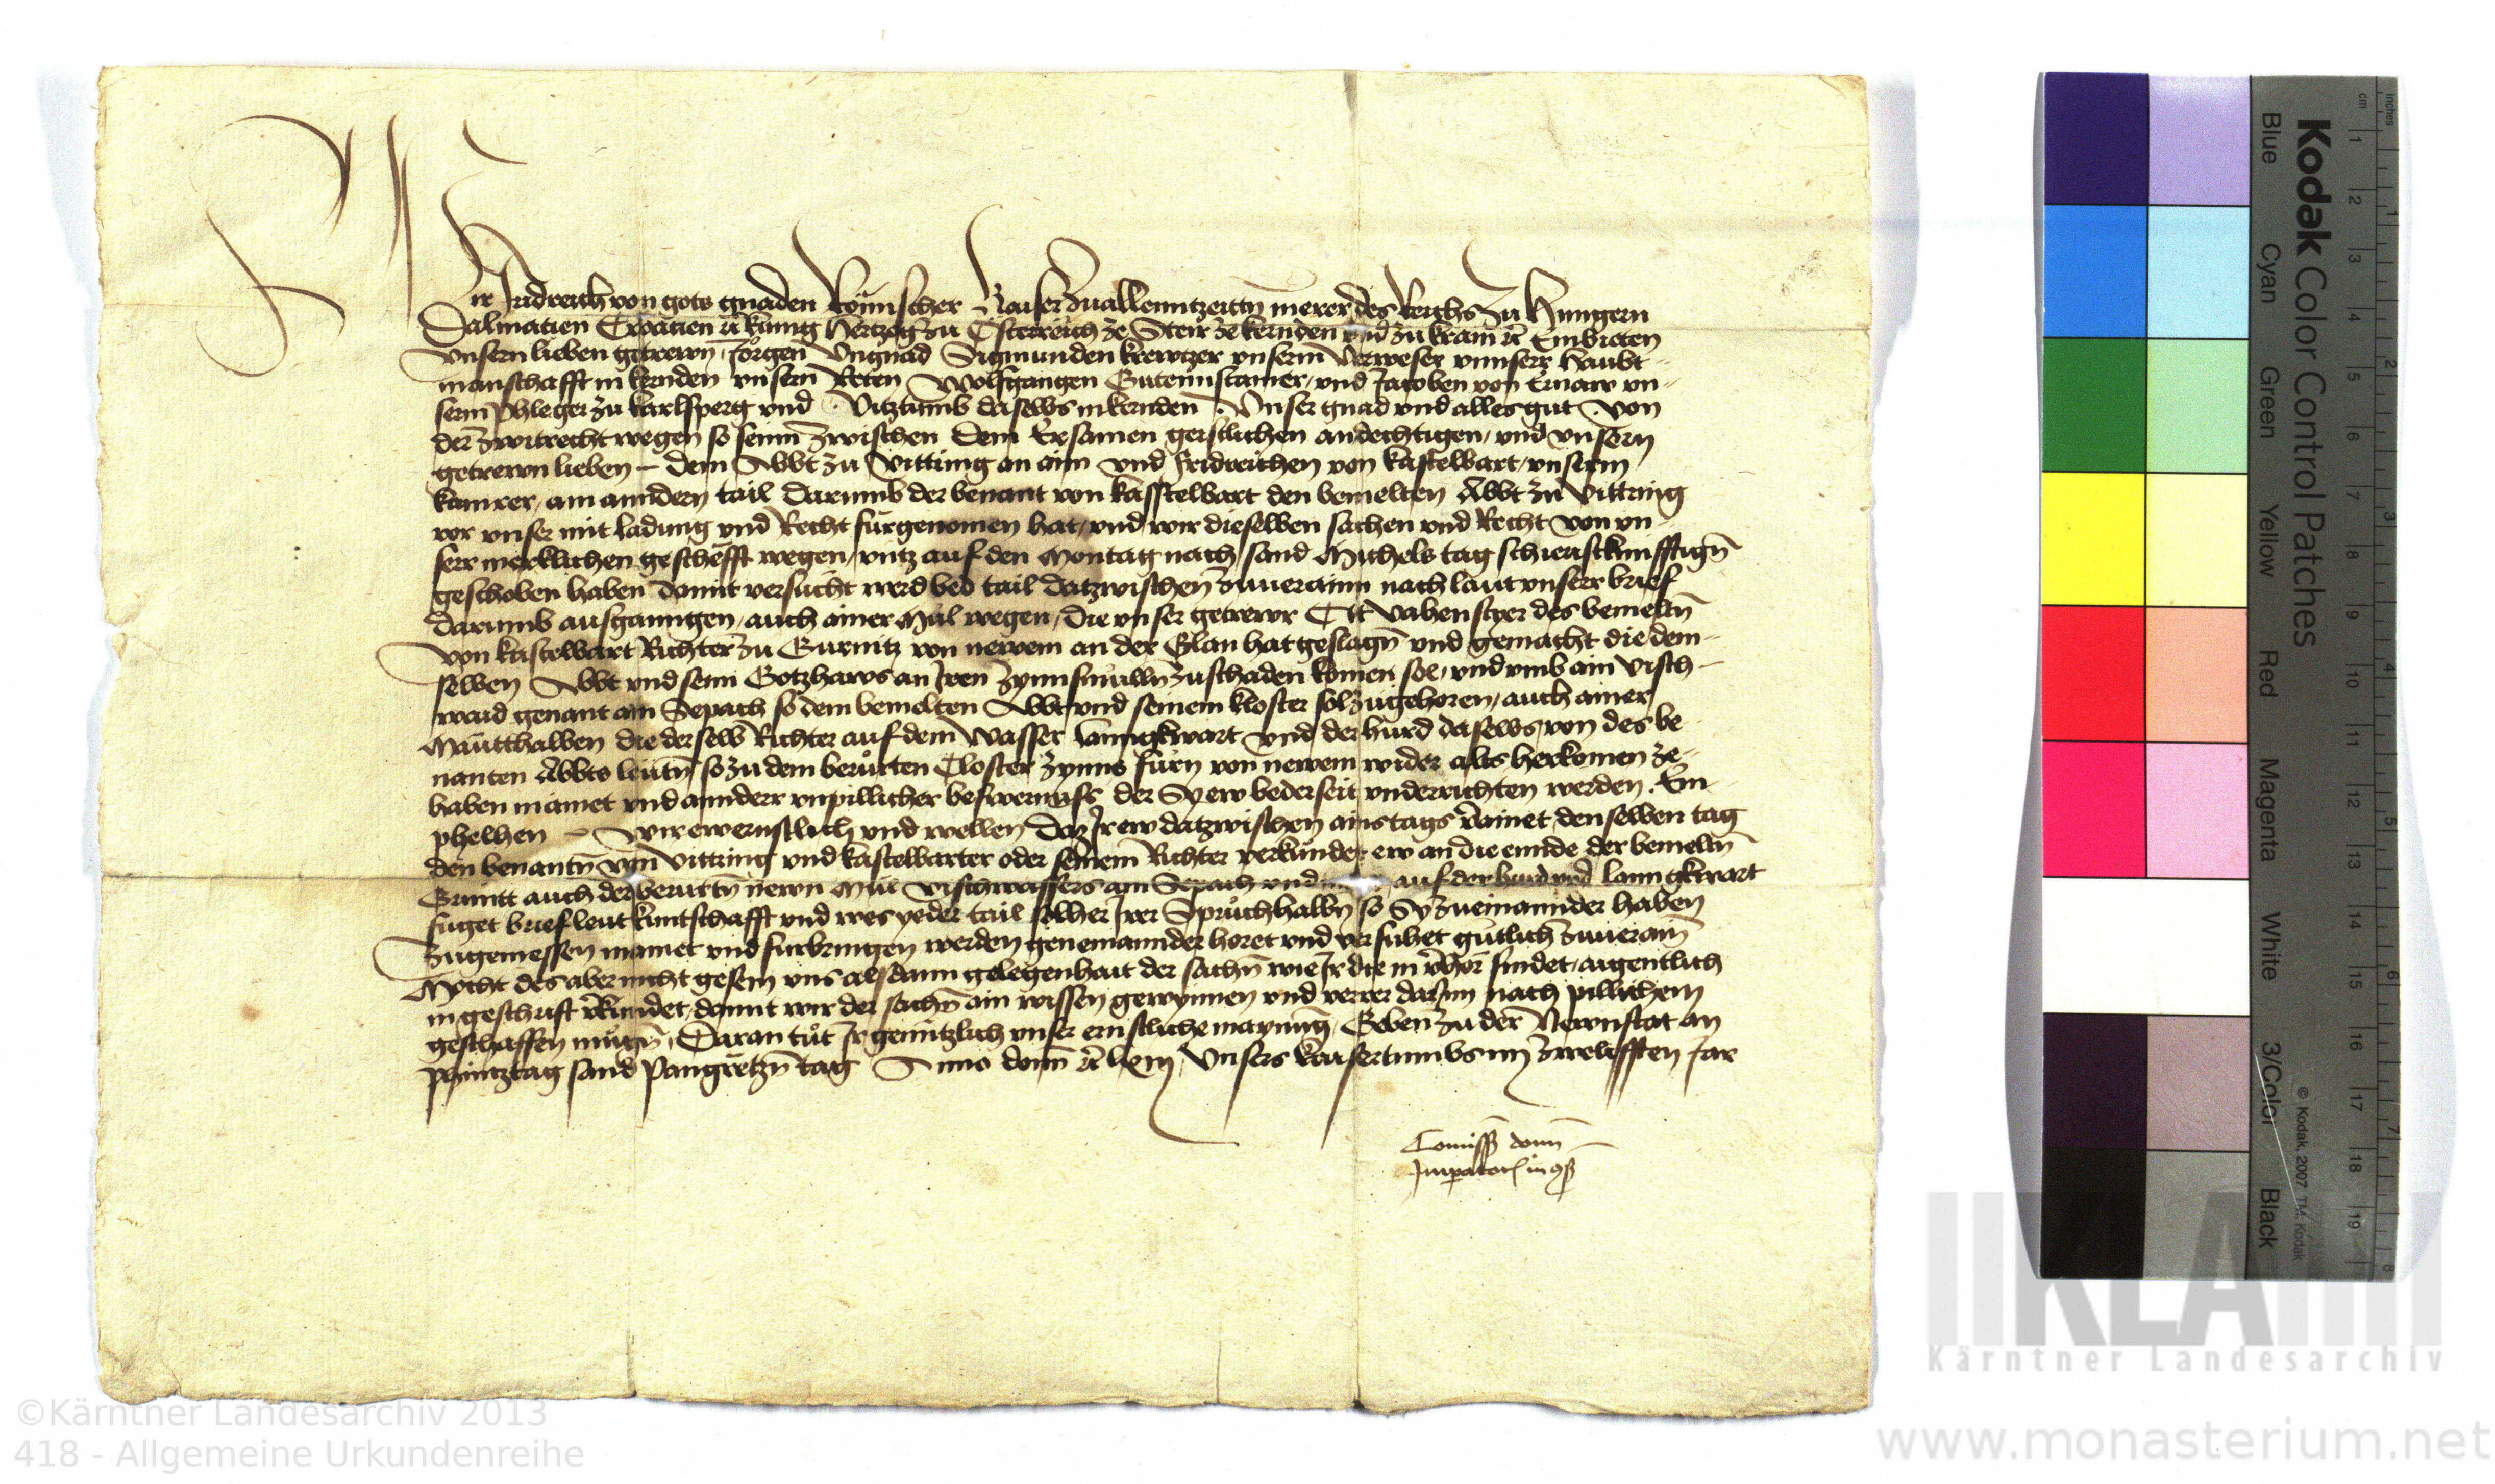 Wir Fridreich von gots gnaden Römischer Kaiser zuallenntzeittn merer des Reichs zu Hungern
Dalmatien Croatien ꝛc kunig Hertzog zu Österreich ze Steir ze kernden vnd zu krain ꝛc Embieten
vnsern lieben getrewn Jörgen Vngnad Sigmunden krewtzer vnserm Verweser vnnserr Haubt-
manschafft in kernden vnsern Reten Wolfgangen Gutennstainer, vnd Jacoben von Ernaw vn-
serm Phleger zu karlsperg vnd Vitztumb daselbs in kernden Vnser gnad vnd alles gut Von
der zwitrecht wegen so sein zwischen dem Ersamen geistlichen andechtigen, vnd vnsern
getrewn lieben – dem Abbt zu Vittring an aim vnd Fridreichen von kastelbart, vnserm
kamrer, am anndern tail darumb der benant von kasstelbart den bemelten Abbt zu Vittring
vor vnser mit ladung vnd Recht fürgenomen hat, vnd wir dieselben sachen vnd Recht von vn-
serr merklichen geschëfft wegen, vntz auf den Montag nach sand Michels tag schieristkunfftign
geschoben haben damit versucht werd bed tail datzwischen zuuerainn nach laut vnserr brief
darumb ausganngen, auch ainer Mül wegen, die vnser getrewr Ott Vabenstyer des bemeltn
von kastelbart Richter zu Gurnitz von newem an der Glan hat geslagn vnd gemacht die dem-
selben Abbt vnd seim Gotzhaws an Jren zynnsmülln zuschaden komen sol, vnd vmb ain Visch-
waid genant am Sepach so dem bemelten Abbt vnd seinem kloster sol zugehoren, auch ainer
Mautthalben die derselb Richter auf dem Wasser lanngkwart vnd der hurd daselbs von des be-
nanten Abbts leutn so zu dem berürten Closter zynns fürn von newem wider alts herkomen ze-
haben mainet vnd annderr vnpillicher beswernuss der Sy ew bederseit vnderrichten werden. Em-
phelhen – wir ew ernstlich vnd wellen daz Jr ew datzwischen ains tags verainet, denselben tag
den benantn von Vittring vnd kastelbarter oder seinem Richter verkündet, ew an die ennde der bemeltn
Grüntt auch der berurtn newn Mül Vischwassers am Sepach vnd auf der hurd vnd lanngkwart
füget brief leut kuntschafft vnd wes yeder tail solher Jrer Sprüchhalbn so Sy zueinannder haben
zugeniessen mainet vnd furbringen werden geneinannder horet vnd versuhet gütlich zuuerain
Möcht des aber nicht gesein vns alsdann gelegenhait der sachn wie Jr die in verhör findet, aigentlich
in geschrift verkündet, damit wir der sachn ain wissen gewynnen vnd verrer darjnn nach pillichem
geschaffen mügn. Daran tüt Jr genntzlich vnser ernstliche maynung, Geben zu der Newnstat an
Phintztag sand Pangretzn tag Anno domini ꝛc lxiij Vnsers kaisertumbs im zwelifften Jar
Comissio domini
Imperatoris in consilio
Kodak Color Control Patches
Blue Cyan Green Yellow Red Magenta White 3/Color Black
© Kodak, 2007 TM: Kodak
cm 1 2 3 4 5 6 7 8 9 10 11 12 13 14 15 16 17 18 19
inches 1 2 3 4 5 6 7 8
KLA
Kärntner Landesarchiv
©Kärntner Landesarchiv 2013
418 - Allgemeine Urkundenreihe
www.monasterium.net